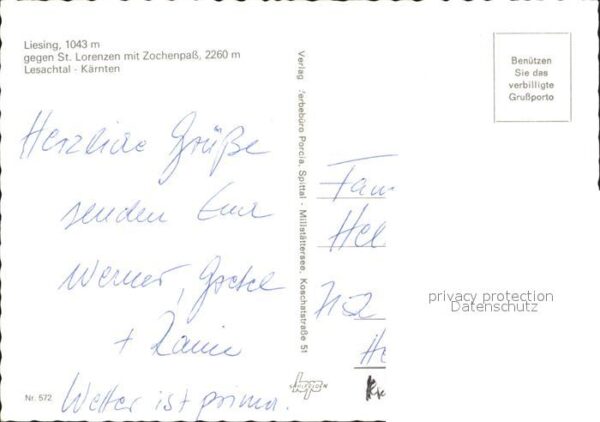 Liesing, 1043 m
gegen St. Lorenzen mit Zochenpaß, 2260 m
Lesachtal - Kärnten
Herzliche Grüße
senden Euch
Werner, Gretel
+
Wetter ist prima.
Nr. 572
Verlag erbebüro Porcia, Spittal · Millstättersee, Koschatstraße 51
Benützen
Sie das
verbilligte
Grußporto
Fam
Hel
He
privacy protection
Datenschutz